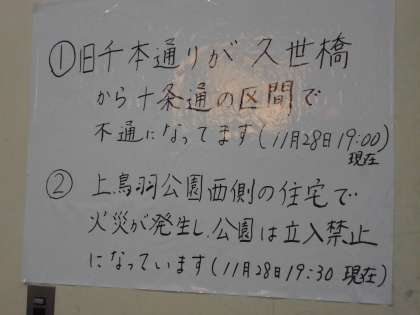 ①旧千本通りが久世橋
から十条通の区間で
不通になってます(11月28日19:00)
現在
②上鳥羽公園西側の住宅で
火災が発生し、公園は立入禁止
になっています(11月28日19:30現在)